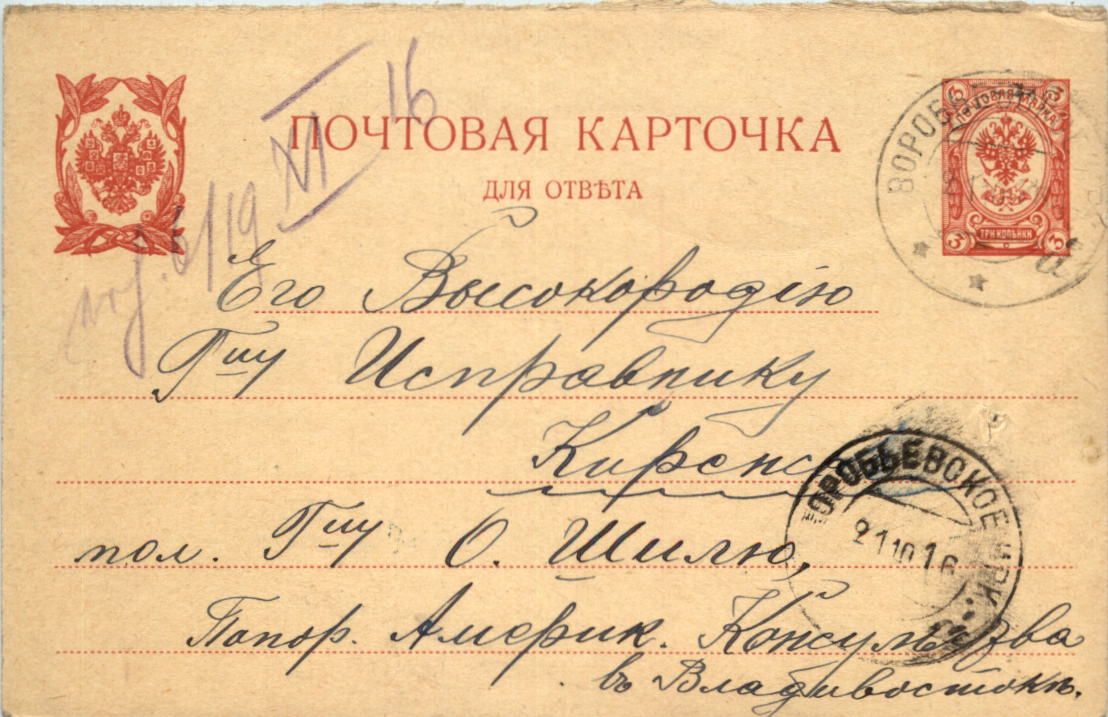 16
XI
ПОЧТОВАЯ КАРТОЧКА
ДЛЯ ОТВѢТА
6/19
ТРИ КОПѢЙКИ
3 3
Его Высокородію
Гну Исправнику
Киренс
ВОРОБЬЕВСКОЕ ИРК.
21 10 16
пол. Гну О. Шилю,
Попор. Америк. Консульства
въ Владивостокѣ.